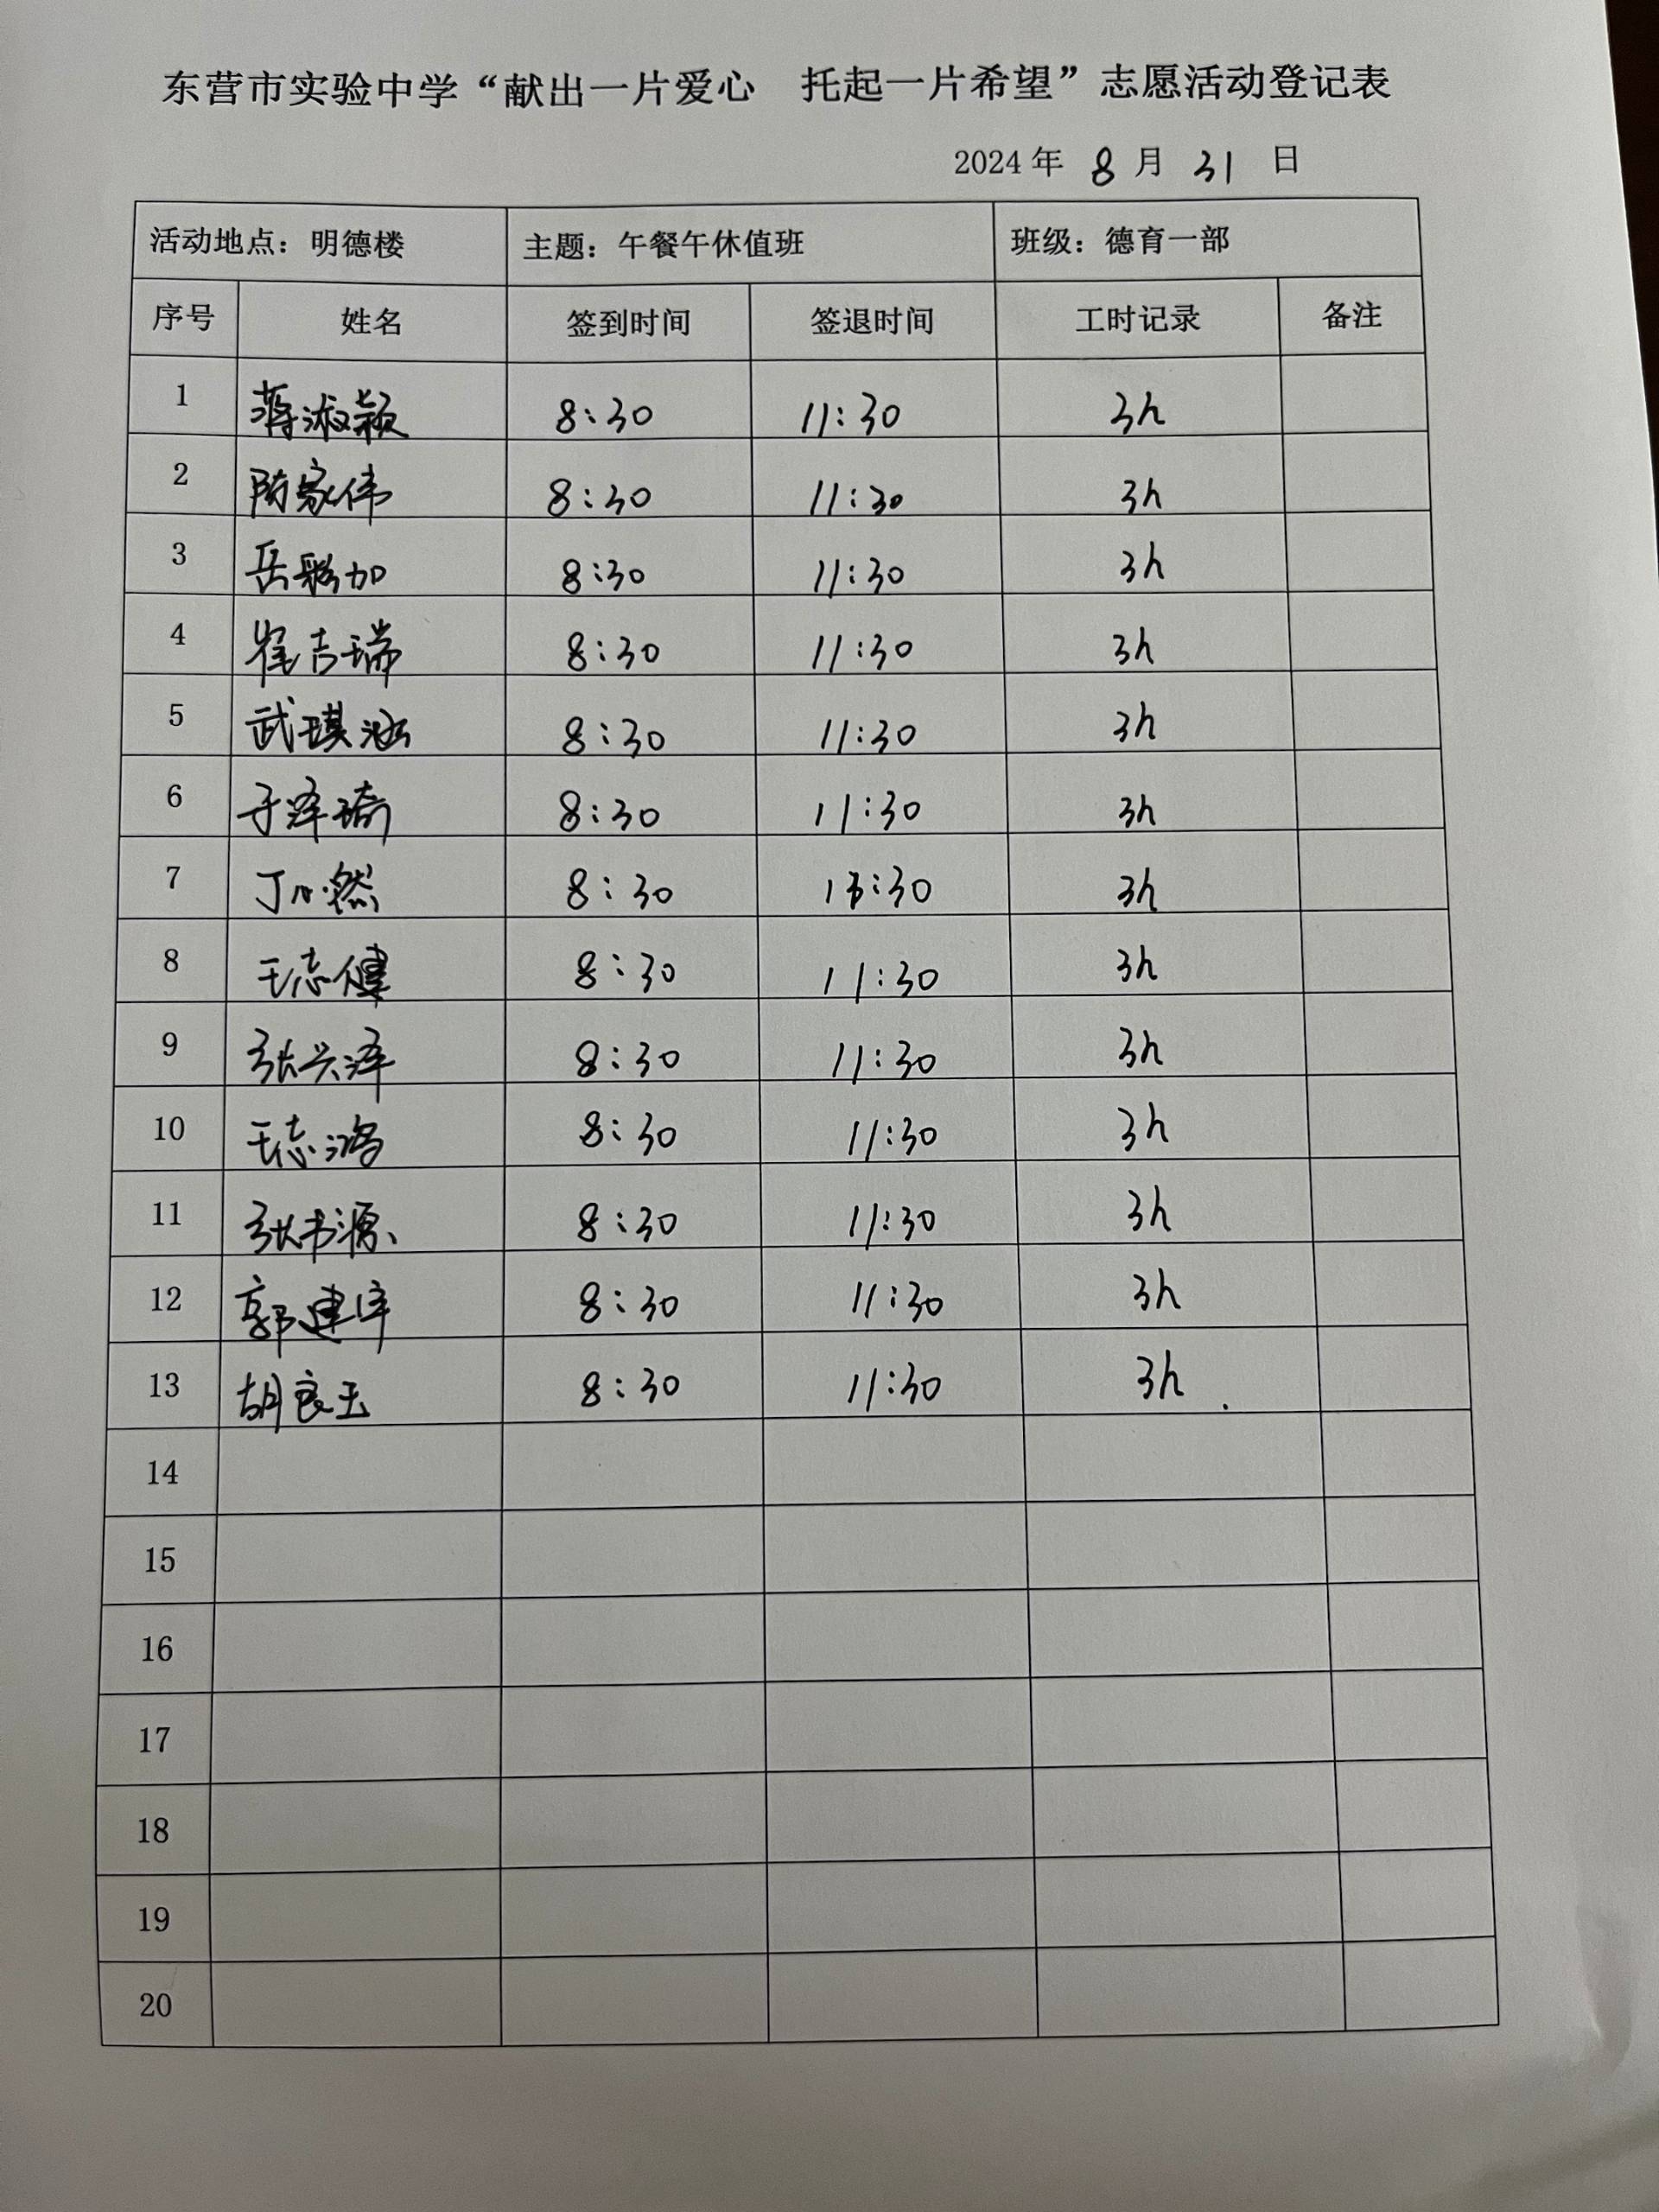 东营市实验中学“献出一片爱心 托起一片希望”志愿活动登记表
2024 年 8 月 31 日
活动地点：明德楼 主题：午餐午休值班 班级：德育一部
序号 姓名 签到时间 签退时间 工时记录 备注
1 蒋淑颖 8:30 11:30 3h
2 陈家伟 8:30 11:30 3h
3 岳彩加 8:30 11:30 3h
4 崔吉瑞 8:30 11:30 3h
5 武琪涵 8:30 11:30 3h
6 于泽琦 8:30 11:30 3h
7 丁心然 8:30 :30 3h
8 王志健 8:30 11:30 3h
9 张兴泽 8:30 11:30 3h
10 王志鸿 8:30 11:30 3h
11 张书源 8:30 11:30 3h
12 郭建 8:30 11:30 3h
13 胡良玉 8:30 11:30 3h
14
15
16
17
18
19
20